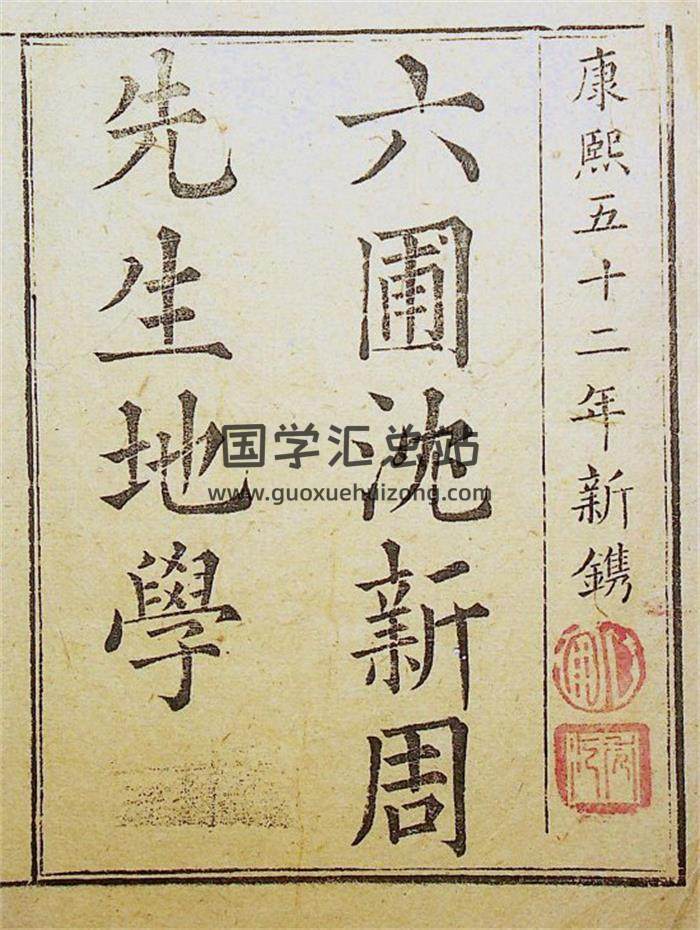 康熙五十二年新鐫
六圃沈新周
先生地學
国学汇总站
www.guoxuehuizong.com